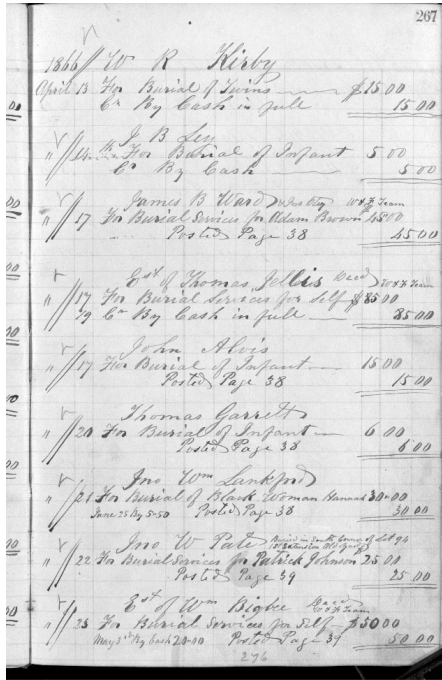 267
1866 W R Kirby
April 13 For Burial of Twins $15 00
Cr By Cash in full 15 00
J B Ley
" 14 For Burial of Infant 5 00
Cr By Cash 5 00
James B Ward W & H Team
" 17 For Burial Services for Adam Brown 45 00
Posted Page 38 45 00
Est of Thomas Jellis Decd W & H Team
" 17 For Burial Services for Self $85 00
19 Cr By Cash in full 85 00
John Alvis
" 17 For Burial of Infant 15 00
Posted Page 38 15 00
Thomas Garrett
" 20 For Burial of Infant 6 00
Posted Page 38 6 00
Jno Wm Lankford
" 21 For Burial of Black Woman Hannah 30-00
June 25 By 5-50 Posted Page 38 30 00
Jno W Pate Buried in South Corner of Lot 94
1st Extension Old Grounds
" 22 For Burial Services for Patrick Johnson 25 00
Posted Page 39 25 00
Est of Wm Bigbee Decd W & H Team
" 23 For Burial Services for Self $50 00
May 3rd By Cash 20-00 Posted Page 39 50 00
276